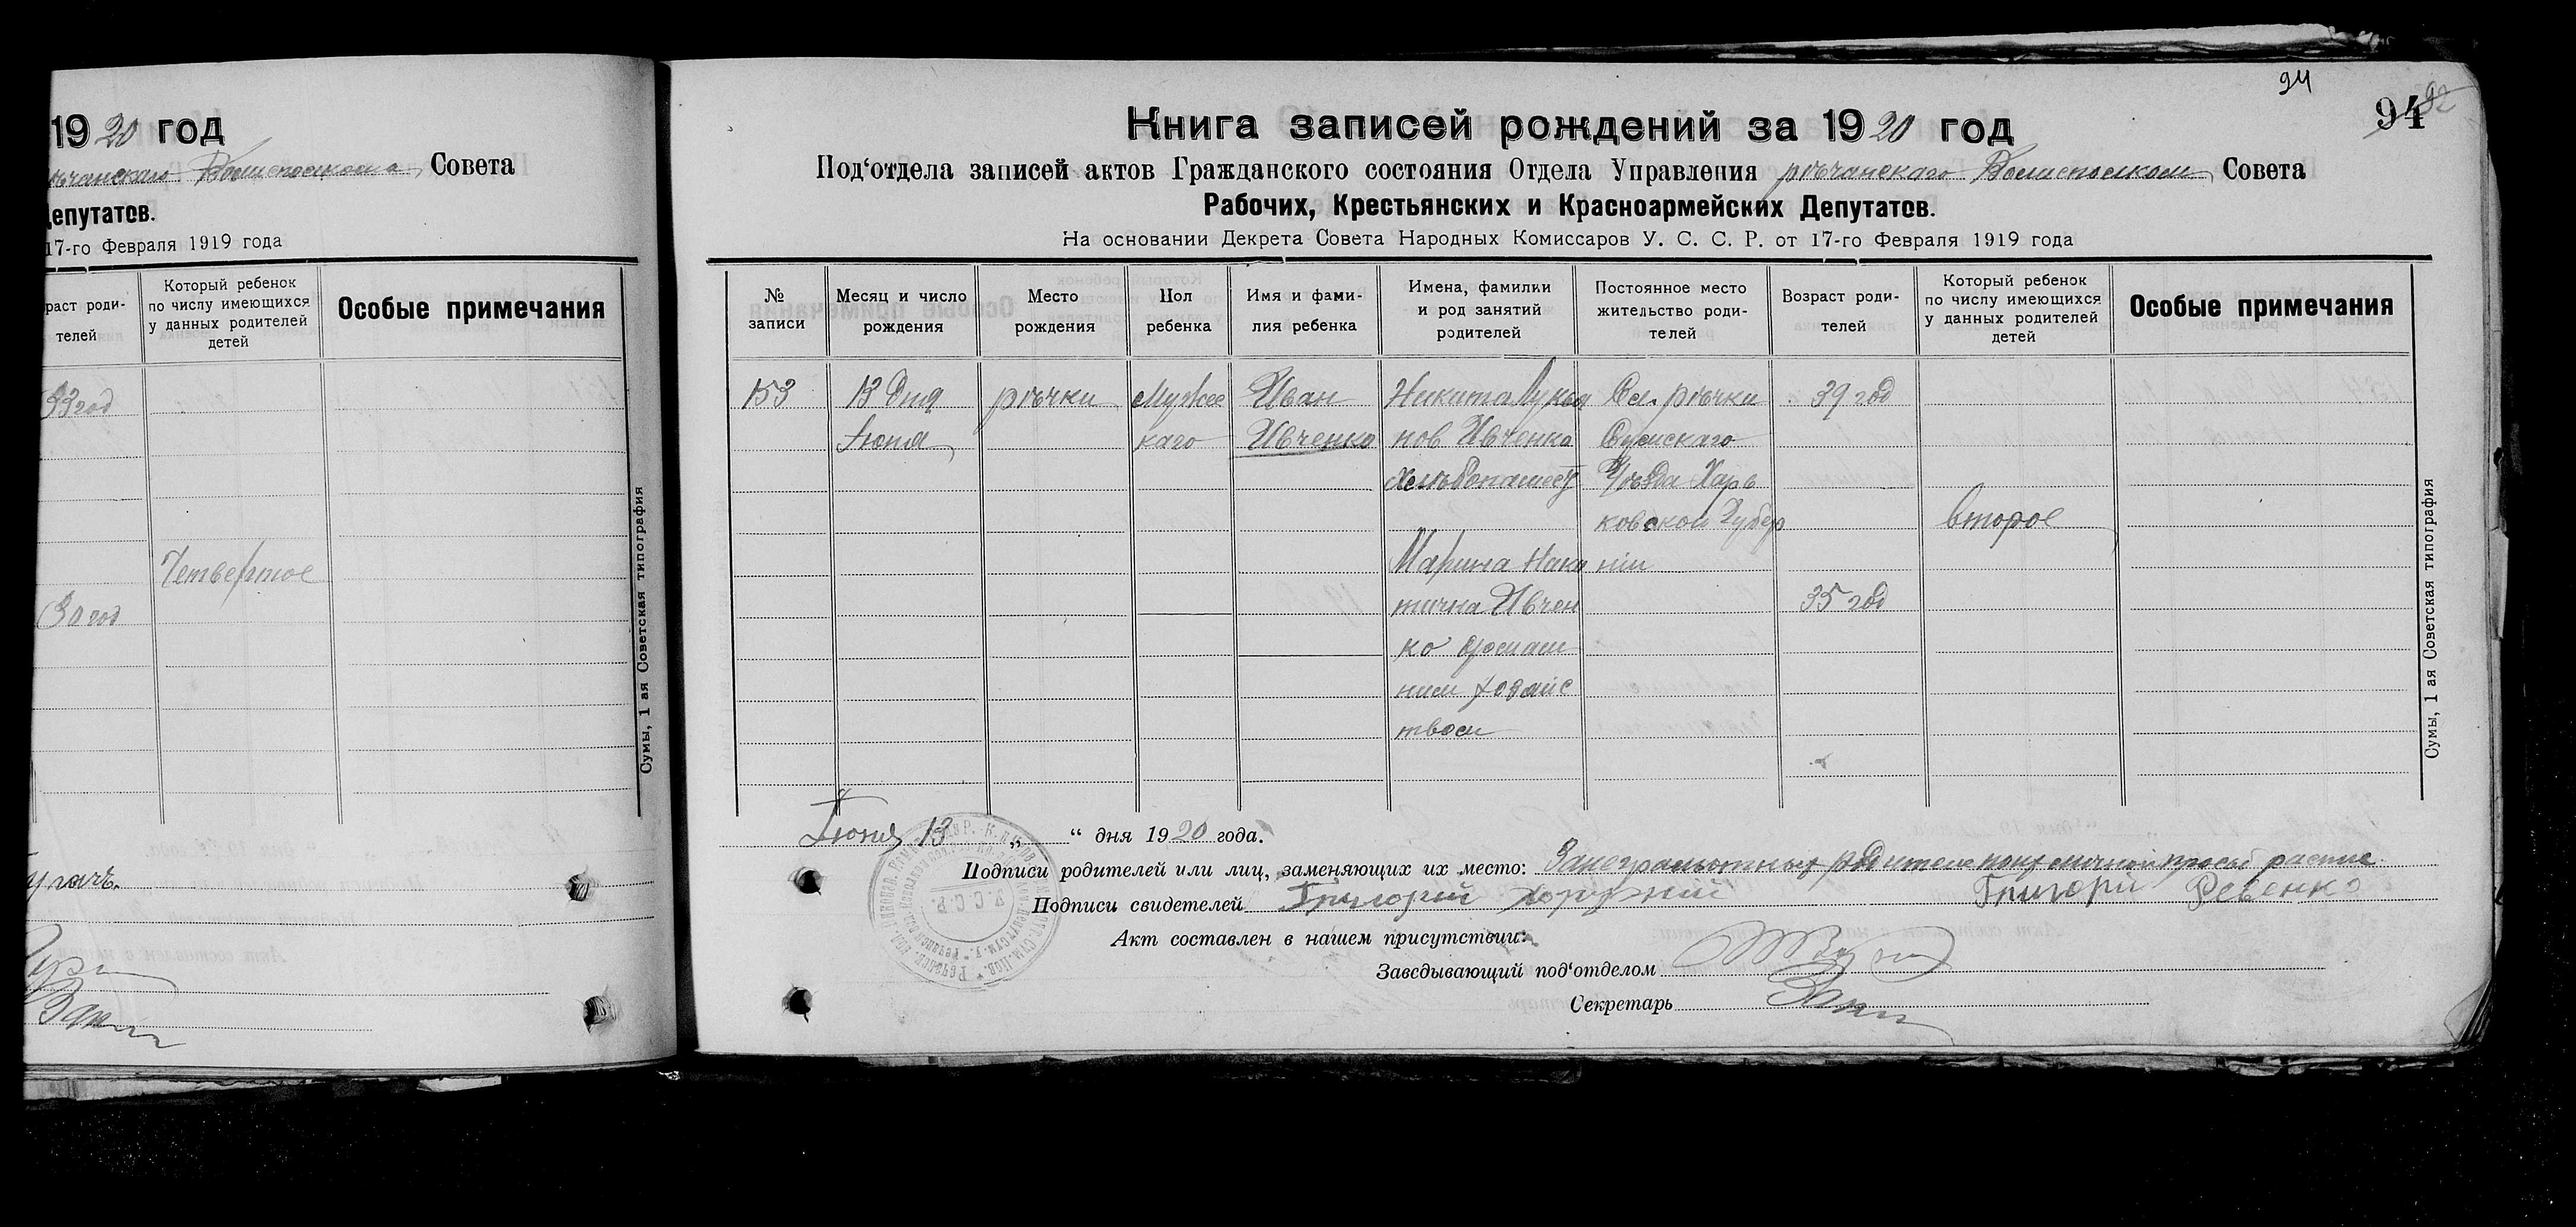 1920 год
Совета
Депутатов.
17-го Февраля 1919 года
раст роди-
телей
Который ребенок
по числу имеющихся
у данных родителей
детей
Особые примечания
33 год
Четвертое
30 год
Сумы, 1 ая Советская типография
94
94
92
Книга записей рождений за 1920 год
Под‘отдела записей актов Гражданского состояния Отдела Управления рѣчанскаго Волисполком Совета
Рабочих, Крестьянских и Красноармейских Депутатов.
На основании Декрета Совета Народных Комиссаров У. С. С. Р. от 17-го Февраля 1919 года
№
записи
Месяц и число
рождения
Место
рождения
Пол
ребенка
Имя и фами-
лия ребенка
Имена, фамилки
и род занятий
родителей
Постоянное место
жительство роди-
телей
Возраст роди-
телей
Который ребенок
по числу имеющихся
у данных родителей
детей
Особые примечания
153
13 Дня
Iюня
рѣчки
Мужес
каго
Иван
Ивченко
Никита Лукья
нов Ивченко
хлѣбопашест
Марина Ники
тична Ивчен
ко домаш
ним хозяйс
твом
Сел. рѣчки
Сумскаго
Уѣзда Харь
ковской Губер
нiи
39 год
35 год
второе
Сумы, 1 ая Советская типография
Iюня 13 „ “ дня 1920 года.
Подписи родителей или лиц, заменяющих их место: За неграмотных родителей по их личной просьб распис
Григорій Ревенко
Подписи свидетелей Григорий Хоружий
Акт составлен в нашем присутствии:
Заведывающий под‘отделом
Секретарь